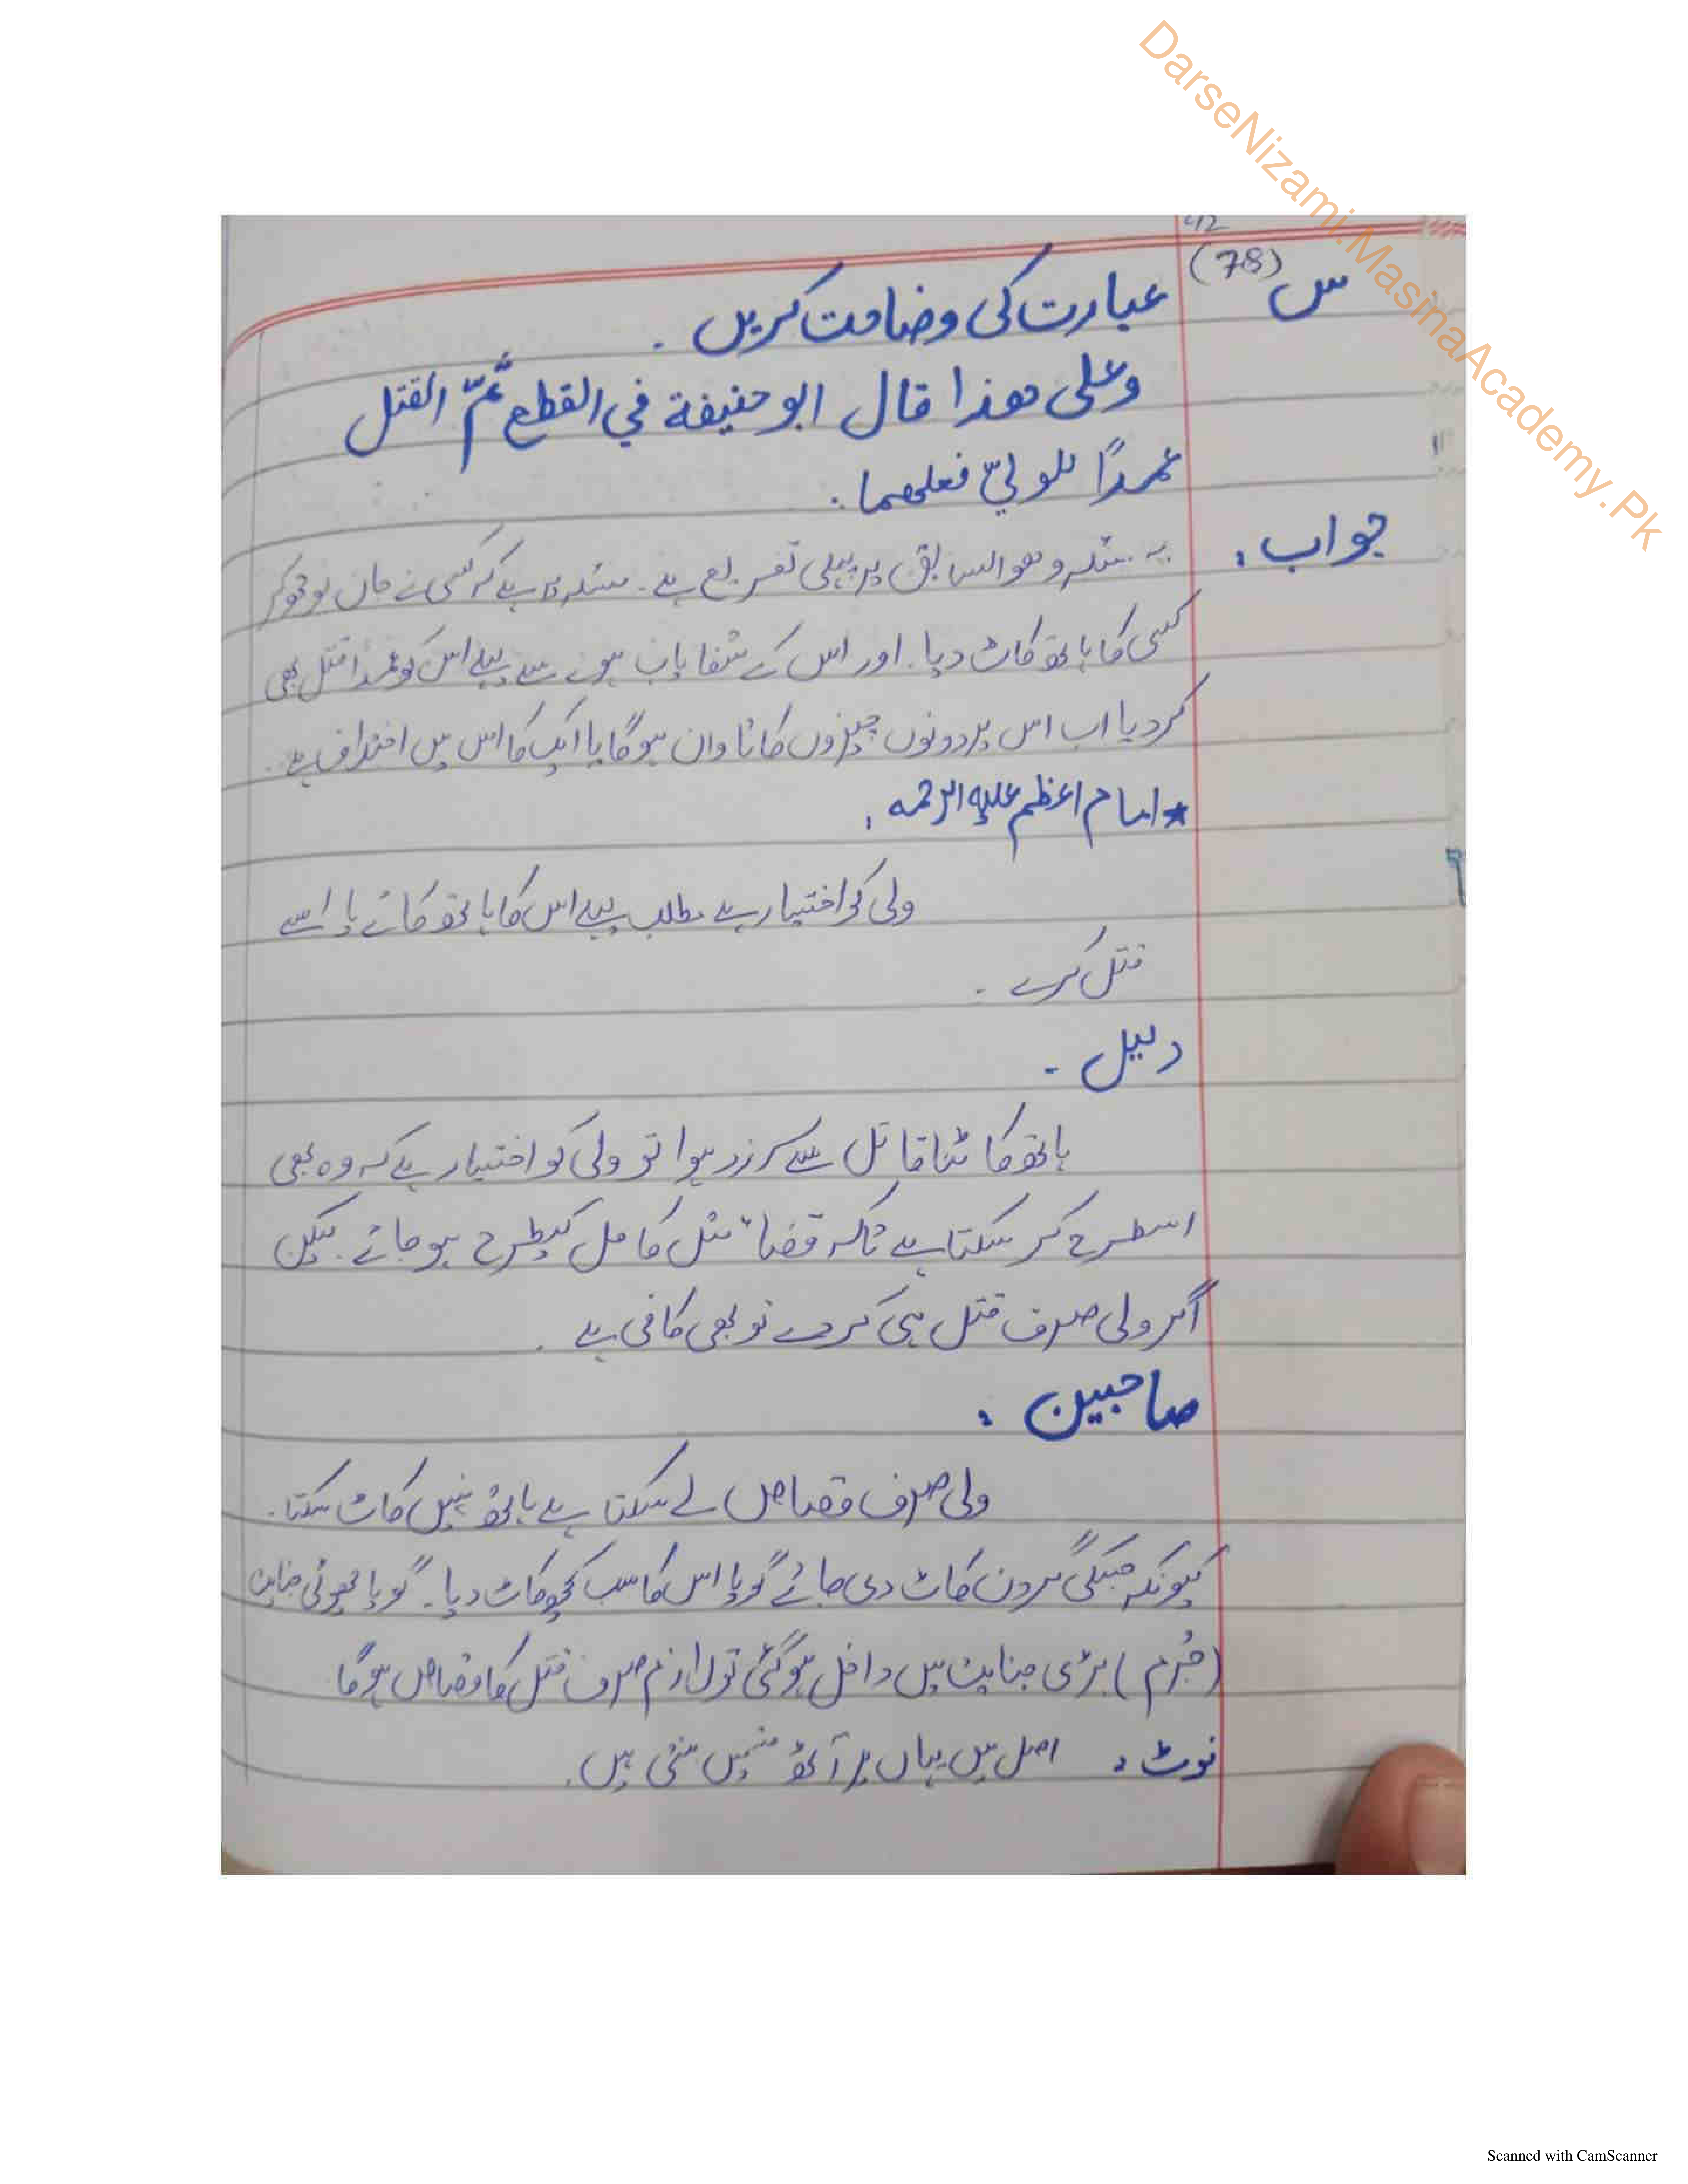 DarseNizami.MasinaAcademy.Pk
س (78) عبارت کی وضاحت کریں ۔
وعلى هذا قال ابو حنيفة في القطع ثمّ القتل
عمداً للوليّ فعلهما .
جواب : یہ مسئلہ وهو السابق پر پہلی تفریع ہے ۔ مسئلہ یہ ہے کہ کسی نے جان بوجھ کر
کسی کا ہاتھ کاٹ دیا ۔ اور اس کے شفا یاب ہونے سے پہلے اس کو عمداً قتل بھی
کردیا اب اس پر دونوں چیزوں کا تاوان ہوگا یا ایک کا اس میں اختلاف ہے ۔
★ امام اعظم علیہ الرحمہ :
ولی کو اختیار ہے مطلب پہلے اس کا ہاتھ کاٹے یا اسے
قتل کرے ۔
دلیل ۔
ہاتھ کاٹنا قاتل سے سرزد ہوا تو ولی کو اختیار ہے کہ وہ بھی
اسطرح کر سکتا ہے تاکہ قضاء مثل کامل کیطرح ہو جائے ۔ لیکن
اگر ولی صرف قتل ہی کر دے تو بھی کافی ہے ۔
صاحبین :
ولی صرف قصاص لے سکتا ہے ہاتھ نہیں کاٹ سکتا ۔
کیونکہ جسکی گردن کاٹ دی جائے گویا اس کا سب کچھ کاٹ دیا ۔ گویا چھوٹی جنایت
(جُرم) بڑی جنایت میں داخل ہوگئی تو لازم صرف قتل کا قصاص ہوگا
نوٹ : اصل میں یہاں پر آٹھ قسمیں بنتی ہیں ۔
Scanned with CamScanner